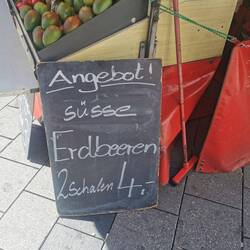 Angebot!
süsse
Erdbeeren
2 Schalen 4.